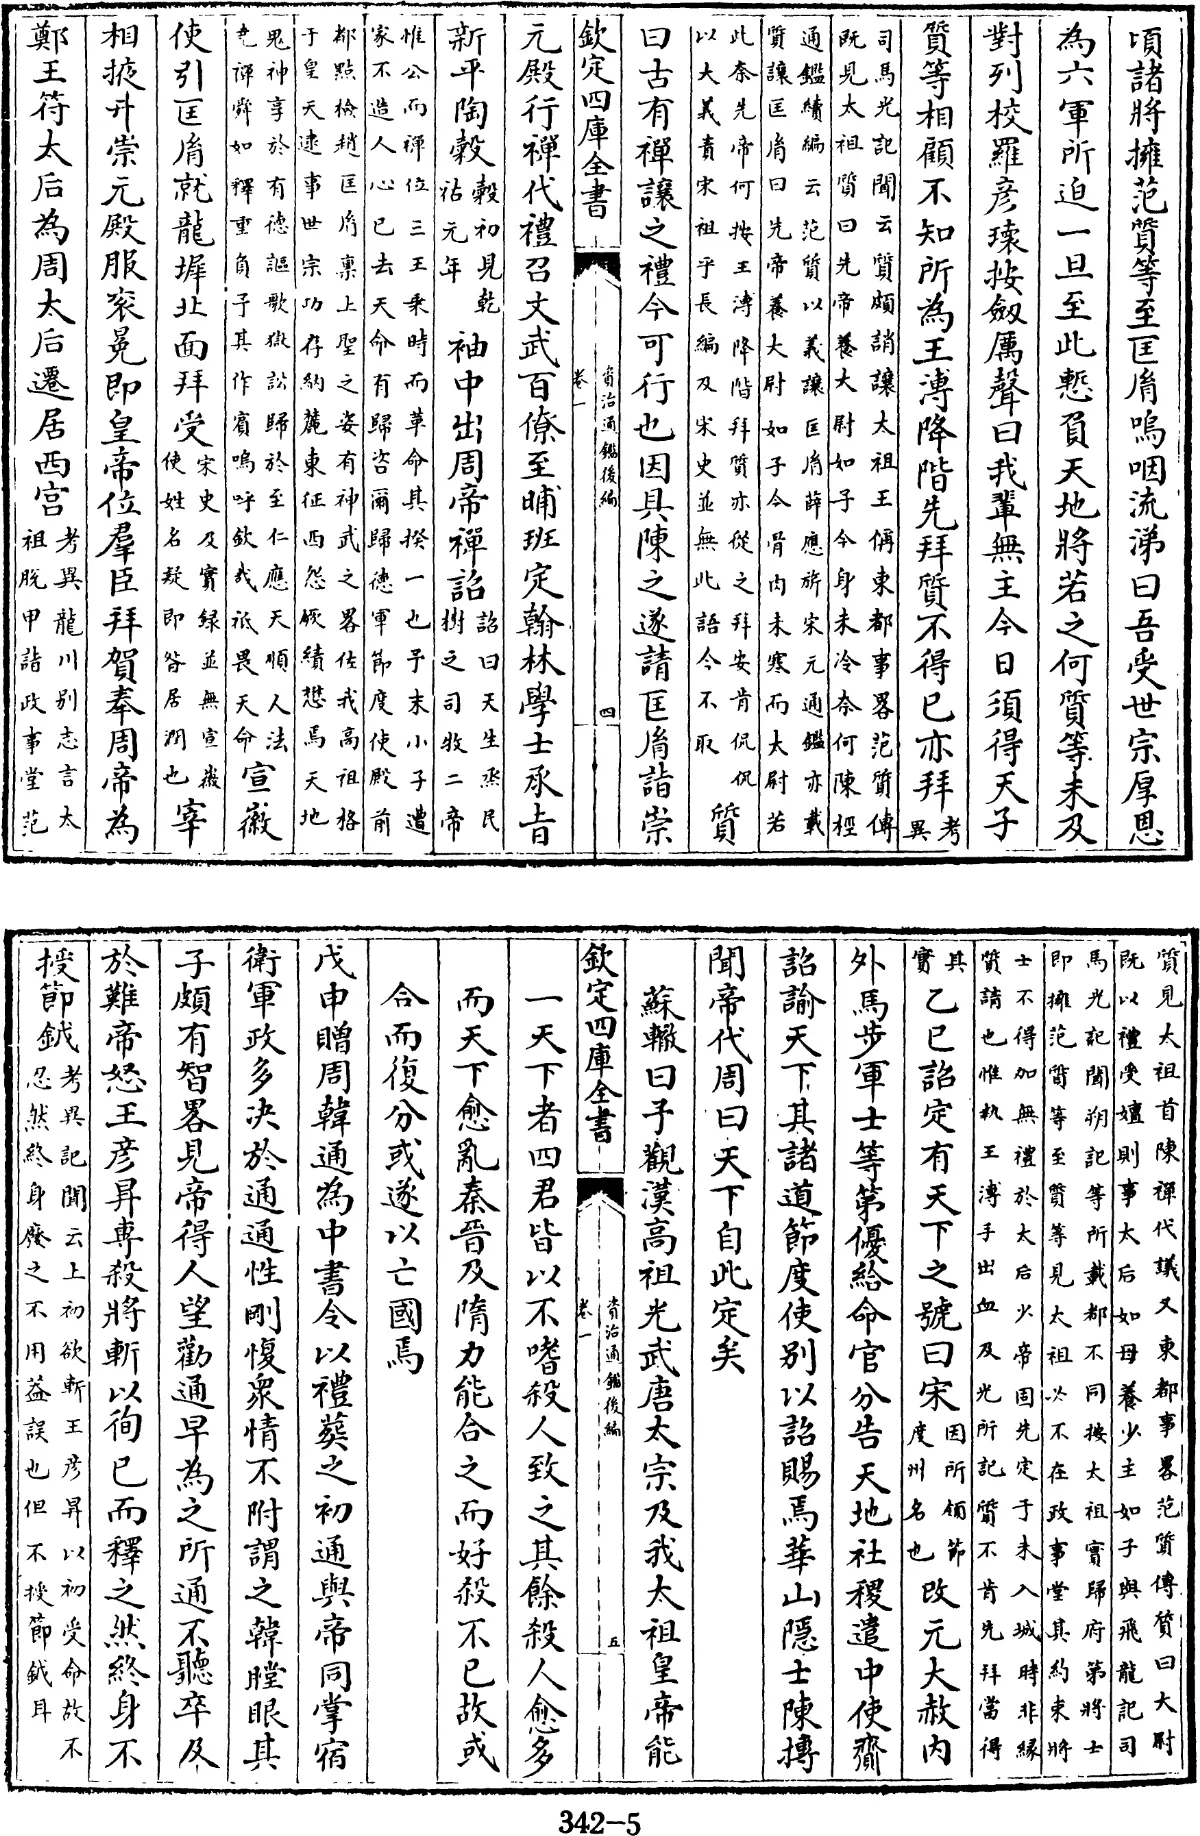 頃諸將擁范質等至匡胤嗚咽流涕曰吾受世宗厚恩
為六軍所迫一旦至此慙負天地將若之何質等未及
對列校羅彦瓌按劒厲聲曰我輩無主今日須得天子
質等相顧不知所為王溥降階先拜質不得已亦拜考異
司馬光記聞云質頗誚讓太祖王偁東都事畧范質傳
既見太祖質曰先帝養大尉如子今身未冷奈何陳桱
通鑑續編云范質以義讓匡胤薛應旂宋元通鑑亦載
質讓匡胤曰先帝養大尉如子今骨肉未寒而大尉若
此奈先帝何按王溥降階拜質亦從之拜安肯侃侃
以大義責宋祖乎長編及宋史並無此語今不取
質
曰古有禪讓之禮今可行也因具陳之遂請匡胤詣崇
欽定四庫全書
資治通鑑後編
卷一
四
元殿行禪代禮召文武百僚至晡班定翰林學士承旨
新平陶榖榖初見乾祐元年袖中出周帝禪詔詔曰天生烝民樹之司牧二帝
惟公而禪位三王乗時而革命其揆一也予末小子遭
家不造人心已去天命有歸咨爾歸徳軍節度使殿前
都點檢趙匡胤禀上聖之姿有神武之畧佐我高祖格
于皇天逮事世宗功存納麓東征西怨厥績懋焉天地
鬼神享於有徳謳歌獄訟歸於至仁應天順人法
堯禪舜如釋重負予其作賓嗚呼欽哉祗畏天命
宣徽
使引匡胤就龍墀北面拜受宋史及實録並無宣徽使姓名疑即昝居潤也宰
相掖升崇元殿服衮冕即皇帝位羣臣拜賀奉周帝為
鄭王符太后為周太后遷居西宫考異龍川别志言太祖脫甲詣政事堂范
質見太祖首陳禪代議又東都事畧范質傳質曰大尉
既以禮受嬗則事太后如母養少主如子與飛龍記司
馬光記聞朔記等所載都不同按太祖實歸府第將士
即擁范質等至質等見太祖必不在政事堂其約束將
士不得加無禮於太后少帝固先定于未入城時非緣
質請也惟執王溥手出血及光所記質不肯先拜當得
其實乙巳詔定有天下之號曰宋因所領節度州名也改元大赦内
外馬步軍士等第優給命官分告天地社稷遣中使齎
詔諭天下其諸道節度使别以詔賜焉華山隱士陳摶
聞帝代周曰天下自此定矣
蘇轍曰予觀漢高祖光武唐太宗及我太祖皇帝能
欽定四庫全書
資治通鑑後編
卷一
五
一天下者四君皆以不嗜殺人致之其餘殺人愈多
而天下愈亂秦晉及隋力能合之而好殺不已故或
合而復分或遂以亡國焉
戊申贈周韓通為中書令以禮葬之初通與帝同掌宿
衛軍政多決於通通性剛愎衆情不附謂之韓瞠眼其
子頗有智畧見帝得人望勸通早為之所通不聽卒及
於難帝怒王彦昇専殺將斬以徇已而釋之然終身不
授節鉞考異記聞云上初欲斬王彦昇以初受命故不忍然終身廢之不用葢誤也但不授節鉞耳
342-5